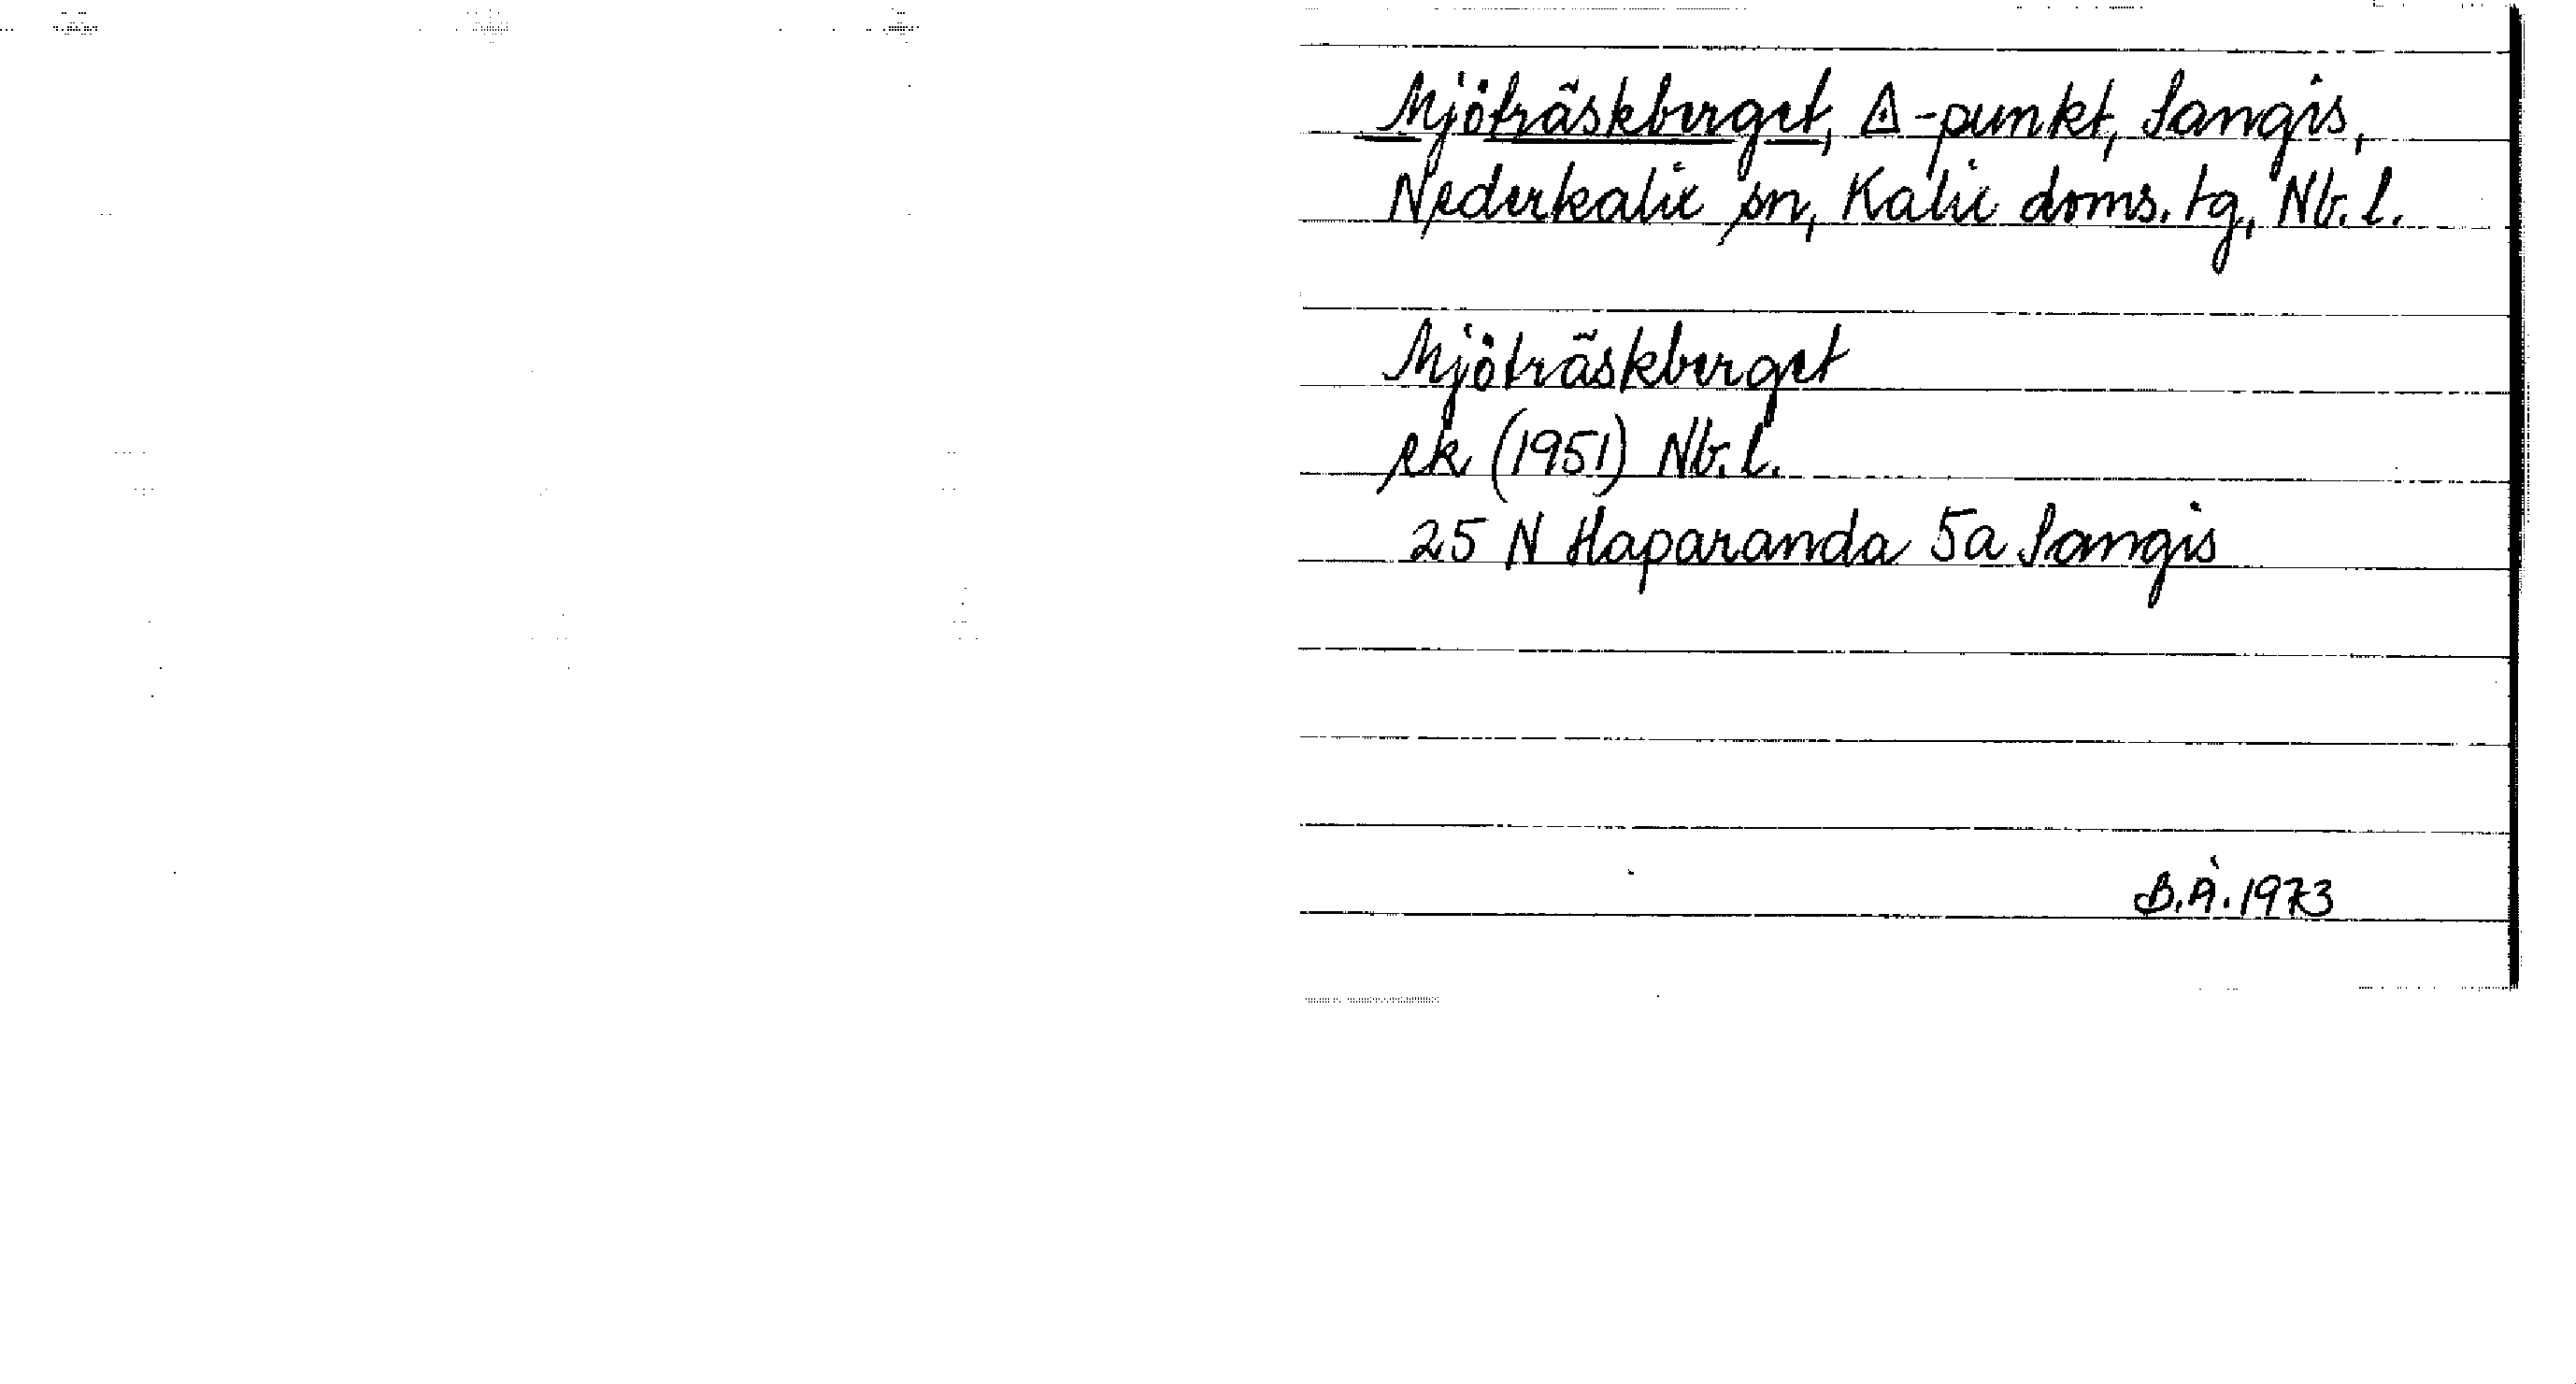 Mjöträskberget, △-punkt, Sangis,
Nederkalix sn, Kalix doms. tg, Nb. l.
Mjöträskberget
ek (1951) Nb. l.
25 N Haparanda 5a Sangis
B.Å. 1973